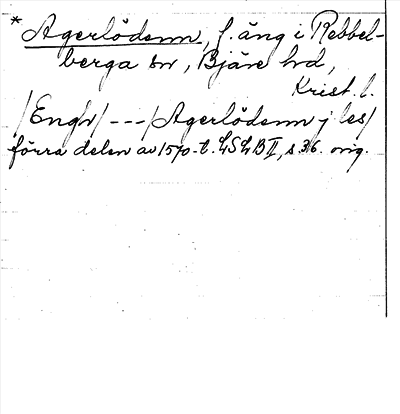 * Agerlödenn, f. äng i Rebbel-
berga sn, Bjäre hd,
Krist. l.
/Engh/ --- /Agerlödenn j les/
förra delen av 1570-t. LSLB II, s. 36. orig.